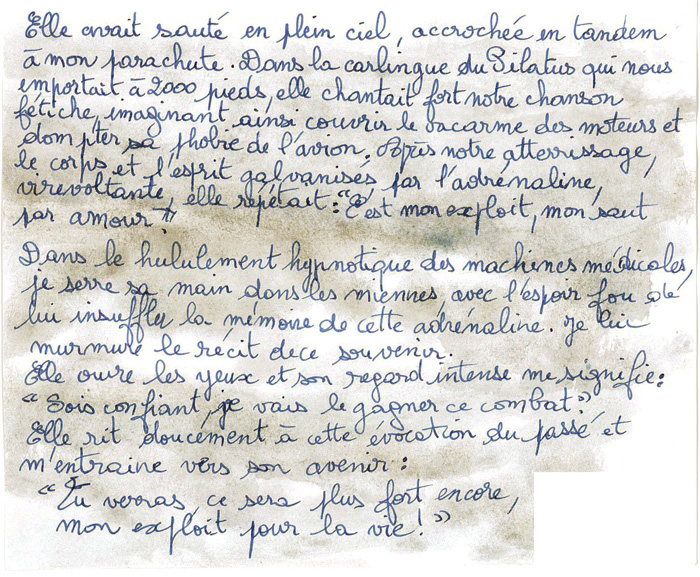 Elle avait sauté en plein ciel, accrochée en tandem
à mon parachute. Dans la carlingue du Pilatus qui nous
emportait à 2000 pieds, elle chantait fort notre chanson
fétiche, imaginant ainsi couvrir le vacarme des moteurs et
dompter sa phobie de l'avion. Après notre atterrissage,
le corps et l'esprit galvanisés par l'adrénaline,
virevoltante, elle répétait : "C'est mon exploit, mon saut
par amour !"
Dans le hululement hypnotique des machines médicales,
je serre sa main dans les miennes, avec l'espoir fou de
lui insuffler la mémoire de cette adrénaline. Je lui
murmure le récit de ce souvenir.
Elle ouvre les yeux et son regard intense me signifie :
"Sois confiant, je vais le gagner ce combat."
Elle rit doucement à cette évocation du passé et
m'entraine vers son avenir :
"Tu verras, ce sera plus fort encore,
mon exploit pour la vie ! "